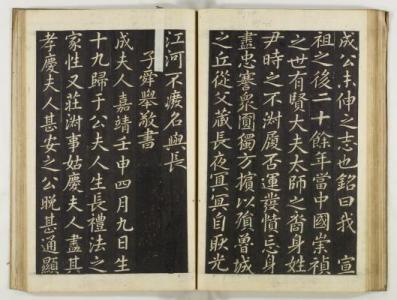 成公未伸之志也銘曰我 宣
祖之後二十餘年當中國崇禎
之世有賢大夫太師之裔身姓
尹時之不淑履否運發憤忘身
盡忠謇衆圓獨方擯以殞魯城
之丘從父藏長夜冥冥自耿光
江河不癈名與長
子舜擧敬書
成夫人嘉靖壬申四月九日生
十九歸于公夫人生長禮法之
家性又莊淑事姑慶夫人盡其
孝慶夫人甚安之公晩甚通顯